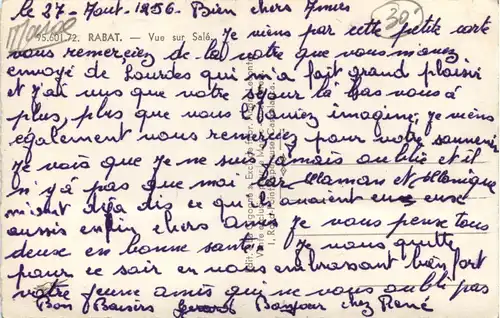 le 27-Aout-1956. Bien chers Amies
Maroc 30
95.601.72. RABAT. — Vue sur Salé.
Je viens par cette petite carte
vous remerciez de la votre que vous m'avez
envoyé de Lourdes qui m'a fait grand plaisir
et j'ai vus que votre séjour la bas vous à
plus, plus que vous l'aviez imaginer, je viens
également vous remerciez pour votre souvenir
Je vois que je ne suis jamais oublié et il
n'y à pas que moi car Maman et Monique
m'ont déja dis ce qu'ils avaient eux
aussis enfin chers amis je vous pense tous
deux en bonne santé. Je vous quitte
pour ce soir en vous embrassant bien fort
votre jeune amis qui ne vous oublie pas
Bon Baisers Gerard Bonjour chez René